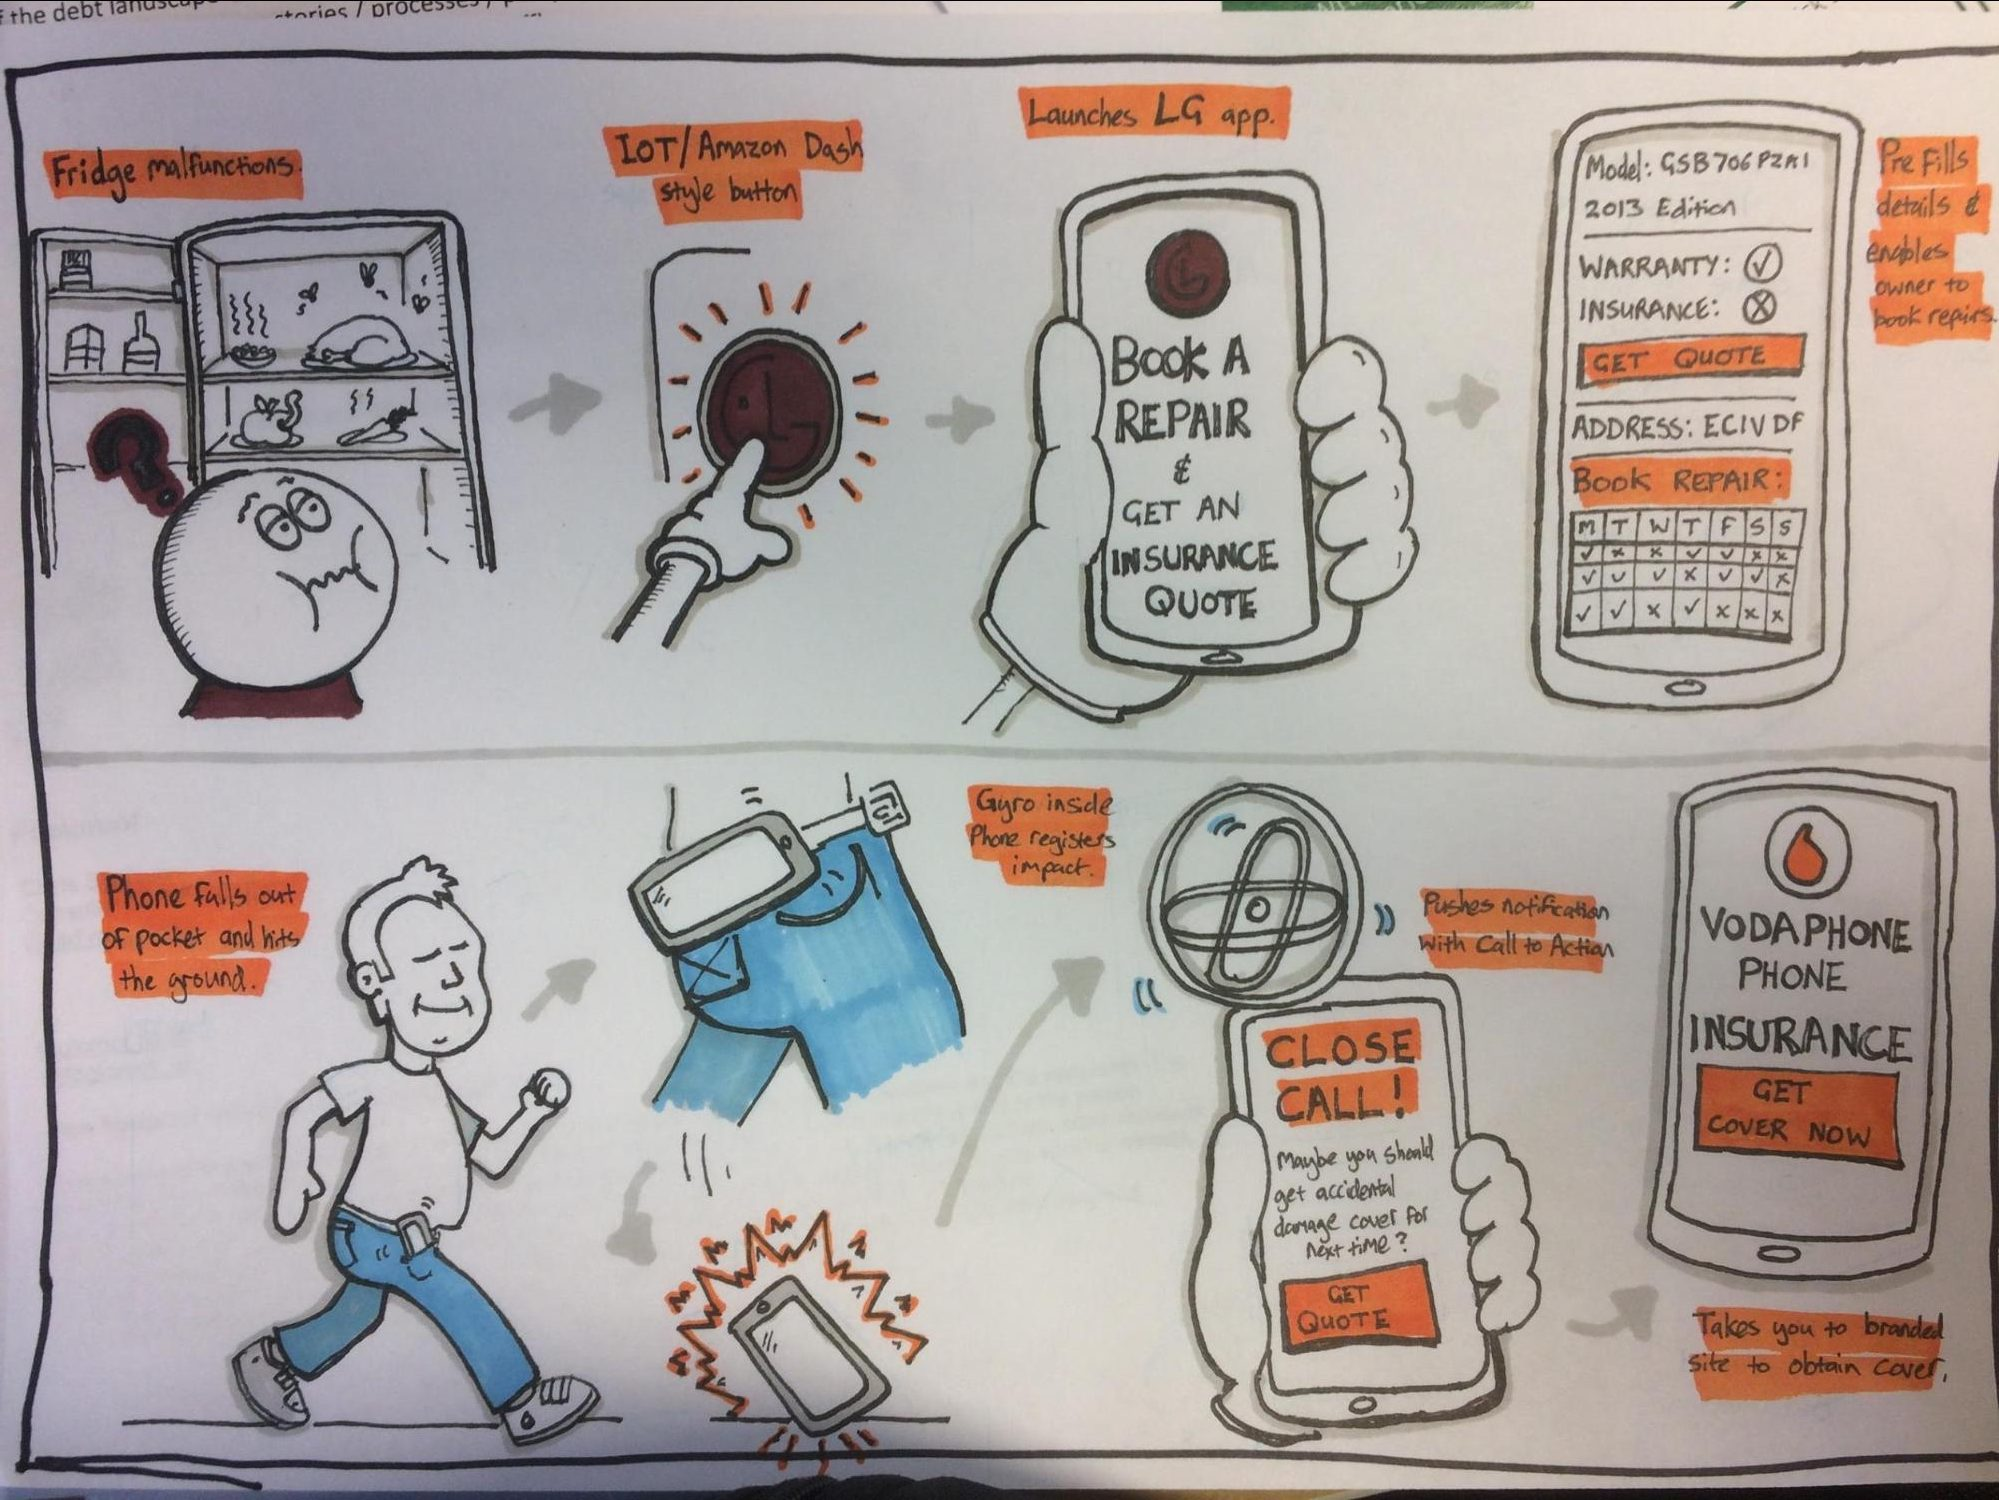 f the debt landscap
stories / processes / p
Fridge malfunctions.
IOT/Amazon Dash
style button
LG
Launches LG app.
BOOK A
REPAIR
&
GET AN
INSURANCE
QUOTE
Model: GSB706PZA1
2013 Edition
WARRANTY: ✓
INSURANCE: X
GET QUOTE
ADDRESS: EC1V DF
BOOK REPAIR:
M T W T F S S
✓ x x ✓ ✓ x x
✓ ✓ ✓ x ✓ ✓ x
✓ ✓ x ✓ x x x
Pre fills
details &
enables
owner to
book repairs.
Phone falls out
of pocket and hits
the ground.
Gyro inside
Phone registers
impact.
Pushes notification
with Call to Action
CLOSE
CALL!
Maybe you should
get accidental
damage cover for
next time?
GET
QUOTE
VODAPHONE
PHONE
INSURANCE
GET
COVER NOW
Takes you to branded
site to obtain cover.